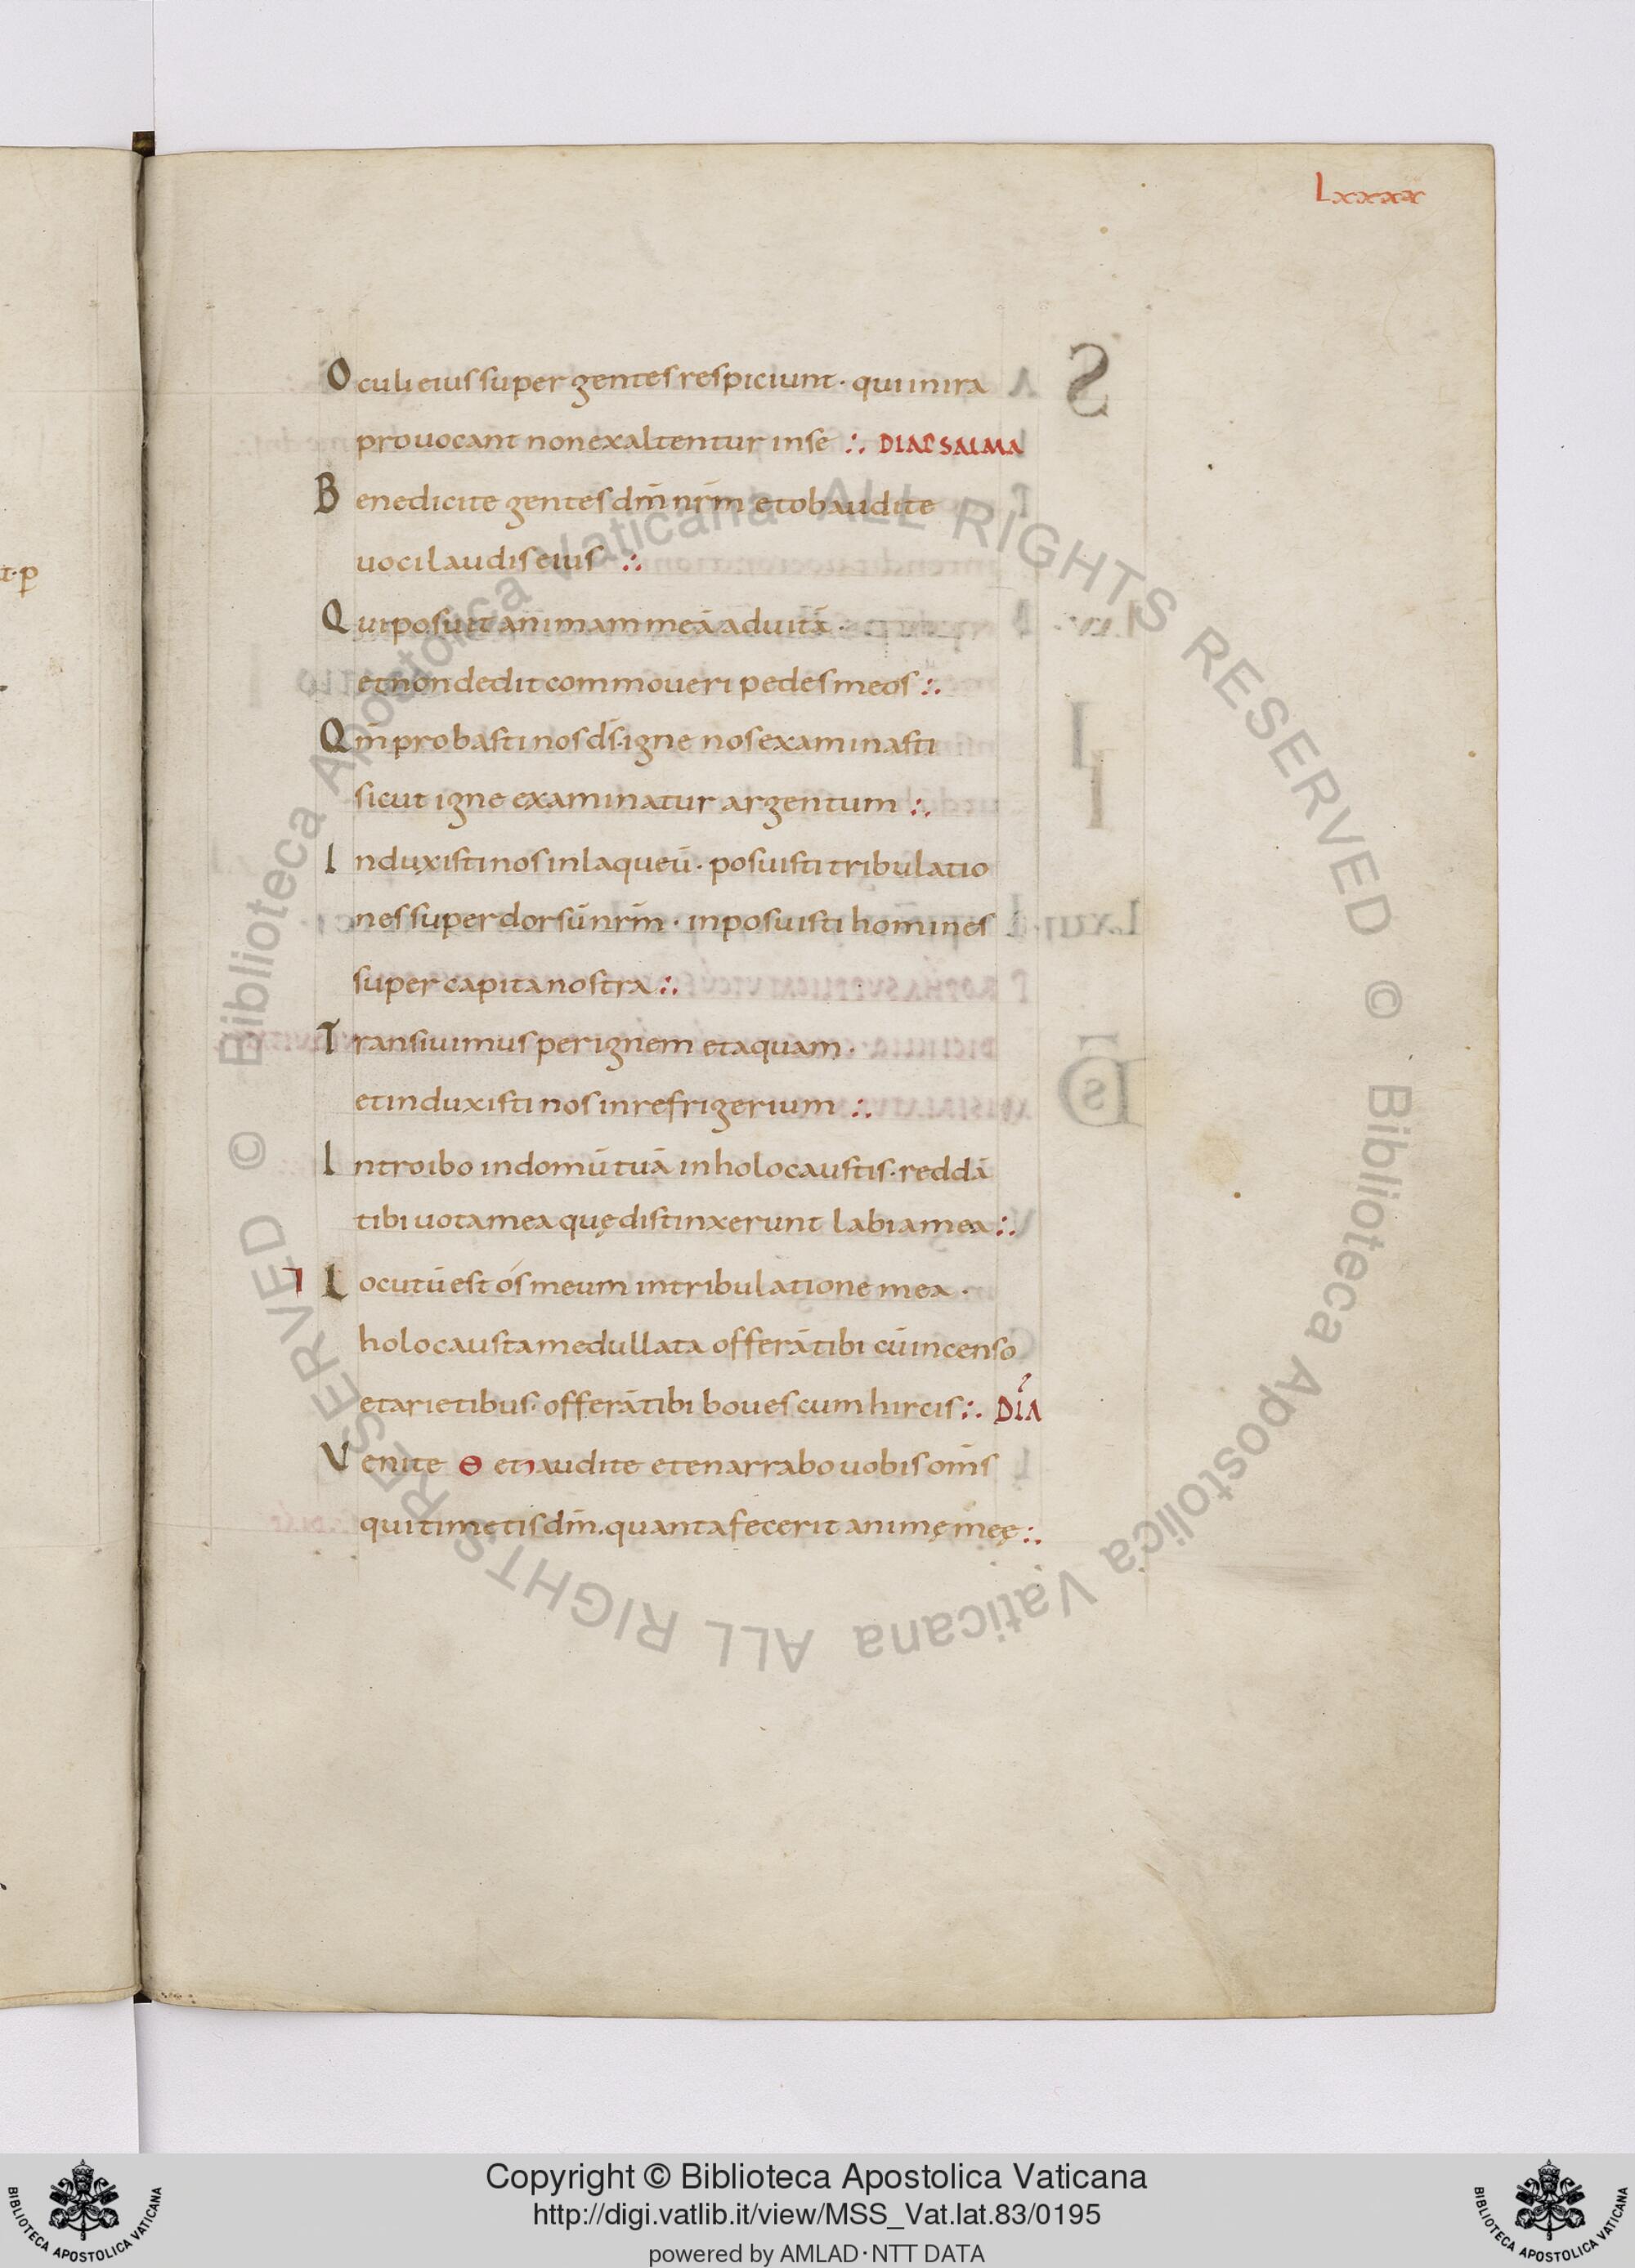 Lxxxx
Oculi eius super gentes respiciunt· qui in ira
prouocant non exaltentur in se ∴ DIAPSALMA
Benedicite gentes dm̄ nrm̄ et obaudite
uoci laudis eius ∴
Qui posuit animam meā ad uitā·
et non dedit commoueri pedes meos ∴
Qm̄ probasti nos ds̄· igne nos examinasti
sicut igne examinatur argentum ∴
Induxisti nos in laqueū· posuisti tribulatio
nes super dorsū nrm̄· inposuisti homines
super capita nostra ∴
Transiuimus per ignem et aquam·
et induxisti nos in refrigerium ∴
Introibo in domū tuā in holocaustis· reddā
tibi uota mea quę distinxerunt labia mea ∴
Locutū est ós meum in tribulatione mea·
holocausta medullata offerā tibi cū incenso
et arietibus· offerā tibi boues cum hircis ∴ DIA
Venite Θ et audite et enarrabo uobis om̄s
qui timetis dm̄· quanta fecerit animę meę ∴
Biblioteca Apostolica Vaticana ALL RIGHTS RESERVED ©
Biblioteca Apostolica Vaticana ALL RIGHTS RESERVED ©
Copyright © Biblioteca Apostolica Vaticana
http://digi.vatlib.it/view/MSS_Vat.lat.83/0195
powered by AMLAD·NTT DATA
BIBLIOTECA APOSTOLICA VATICANA
BIBLIOTECA APOSTOLICA VATICANA